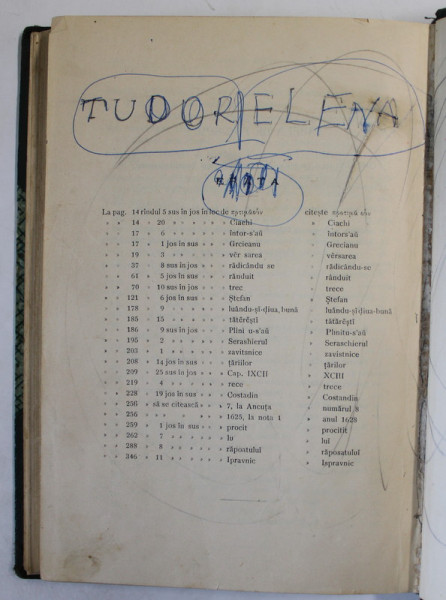 TUDOR ELENA
La pag. 14 rîndul 5 sus în jos în loc de citește
» » 14 » 20 » » » » Ciachi » Ciachi
» » 17 » 6 » » » » lotor-s'aŭ » lotora'aŭ
» » 17 » 1 jos în sus » » Grcieanu » Grecianu
» » 19 » 3 » » » » vĕr sarea » vĕrsarea
» » 37 » 8 sus în jos » » rădicându se » rădicându-se
» » 61 » 5 jos în sus » » rânduit » rânduit
» » 70 » 10 sus în jos » » trec » trece
» » 121 » 6 jos în sus » » Ștefan » Ștefan
» » 178 » 9 » » » » luându-șĭ-ḑiua, bună » luându-șĭ ḑiua bună
» » 185 » 15 » » » » tătĕrĕștĭ » tătărĕștĭ
» » 186 » 9 sus în jos » » Plini u-s'aŭ » Plinitu-s'aŭ
» » 195 » 2 » » » » Serashierul » Seraschierul
» » 203 » 1 » » » » zavitanice » zavistnice
» » 208 » 14 jos în sus » » țăriilor » țărilor
» » 209 » 25 sus în jos » » Cap. IXCII » XCIII
» » 219 » 4 » » » » rece » trece
» » 228 » 19 jos în sus » » Costadin » Costandin
» » 256 » să se citească » » 7, la Ancuța » numărul 8
» » 256 » » » » » 1625, la nota 1 » anul 1628
» » 259 » 1 jos în sus » » procit » procitit
» » 262 » 7 » » » » lu » luĭ
» » 288 » 8 » » » » răposatuluĭ » răposatuluĭ
» » 346 » 11 » » » » Ipravnic » Ispravnic